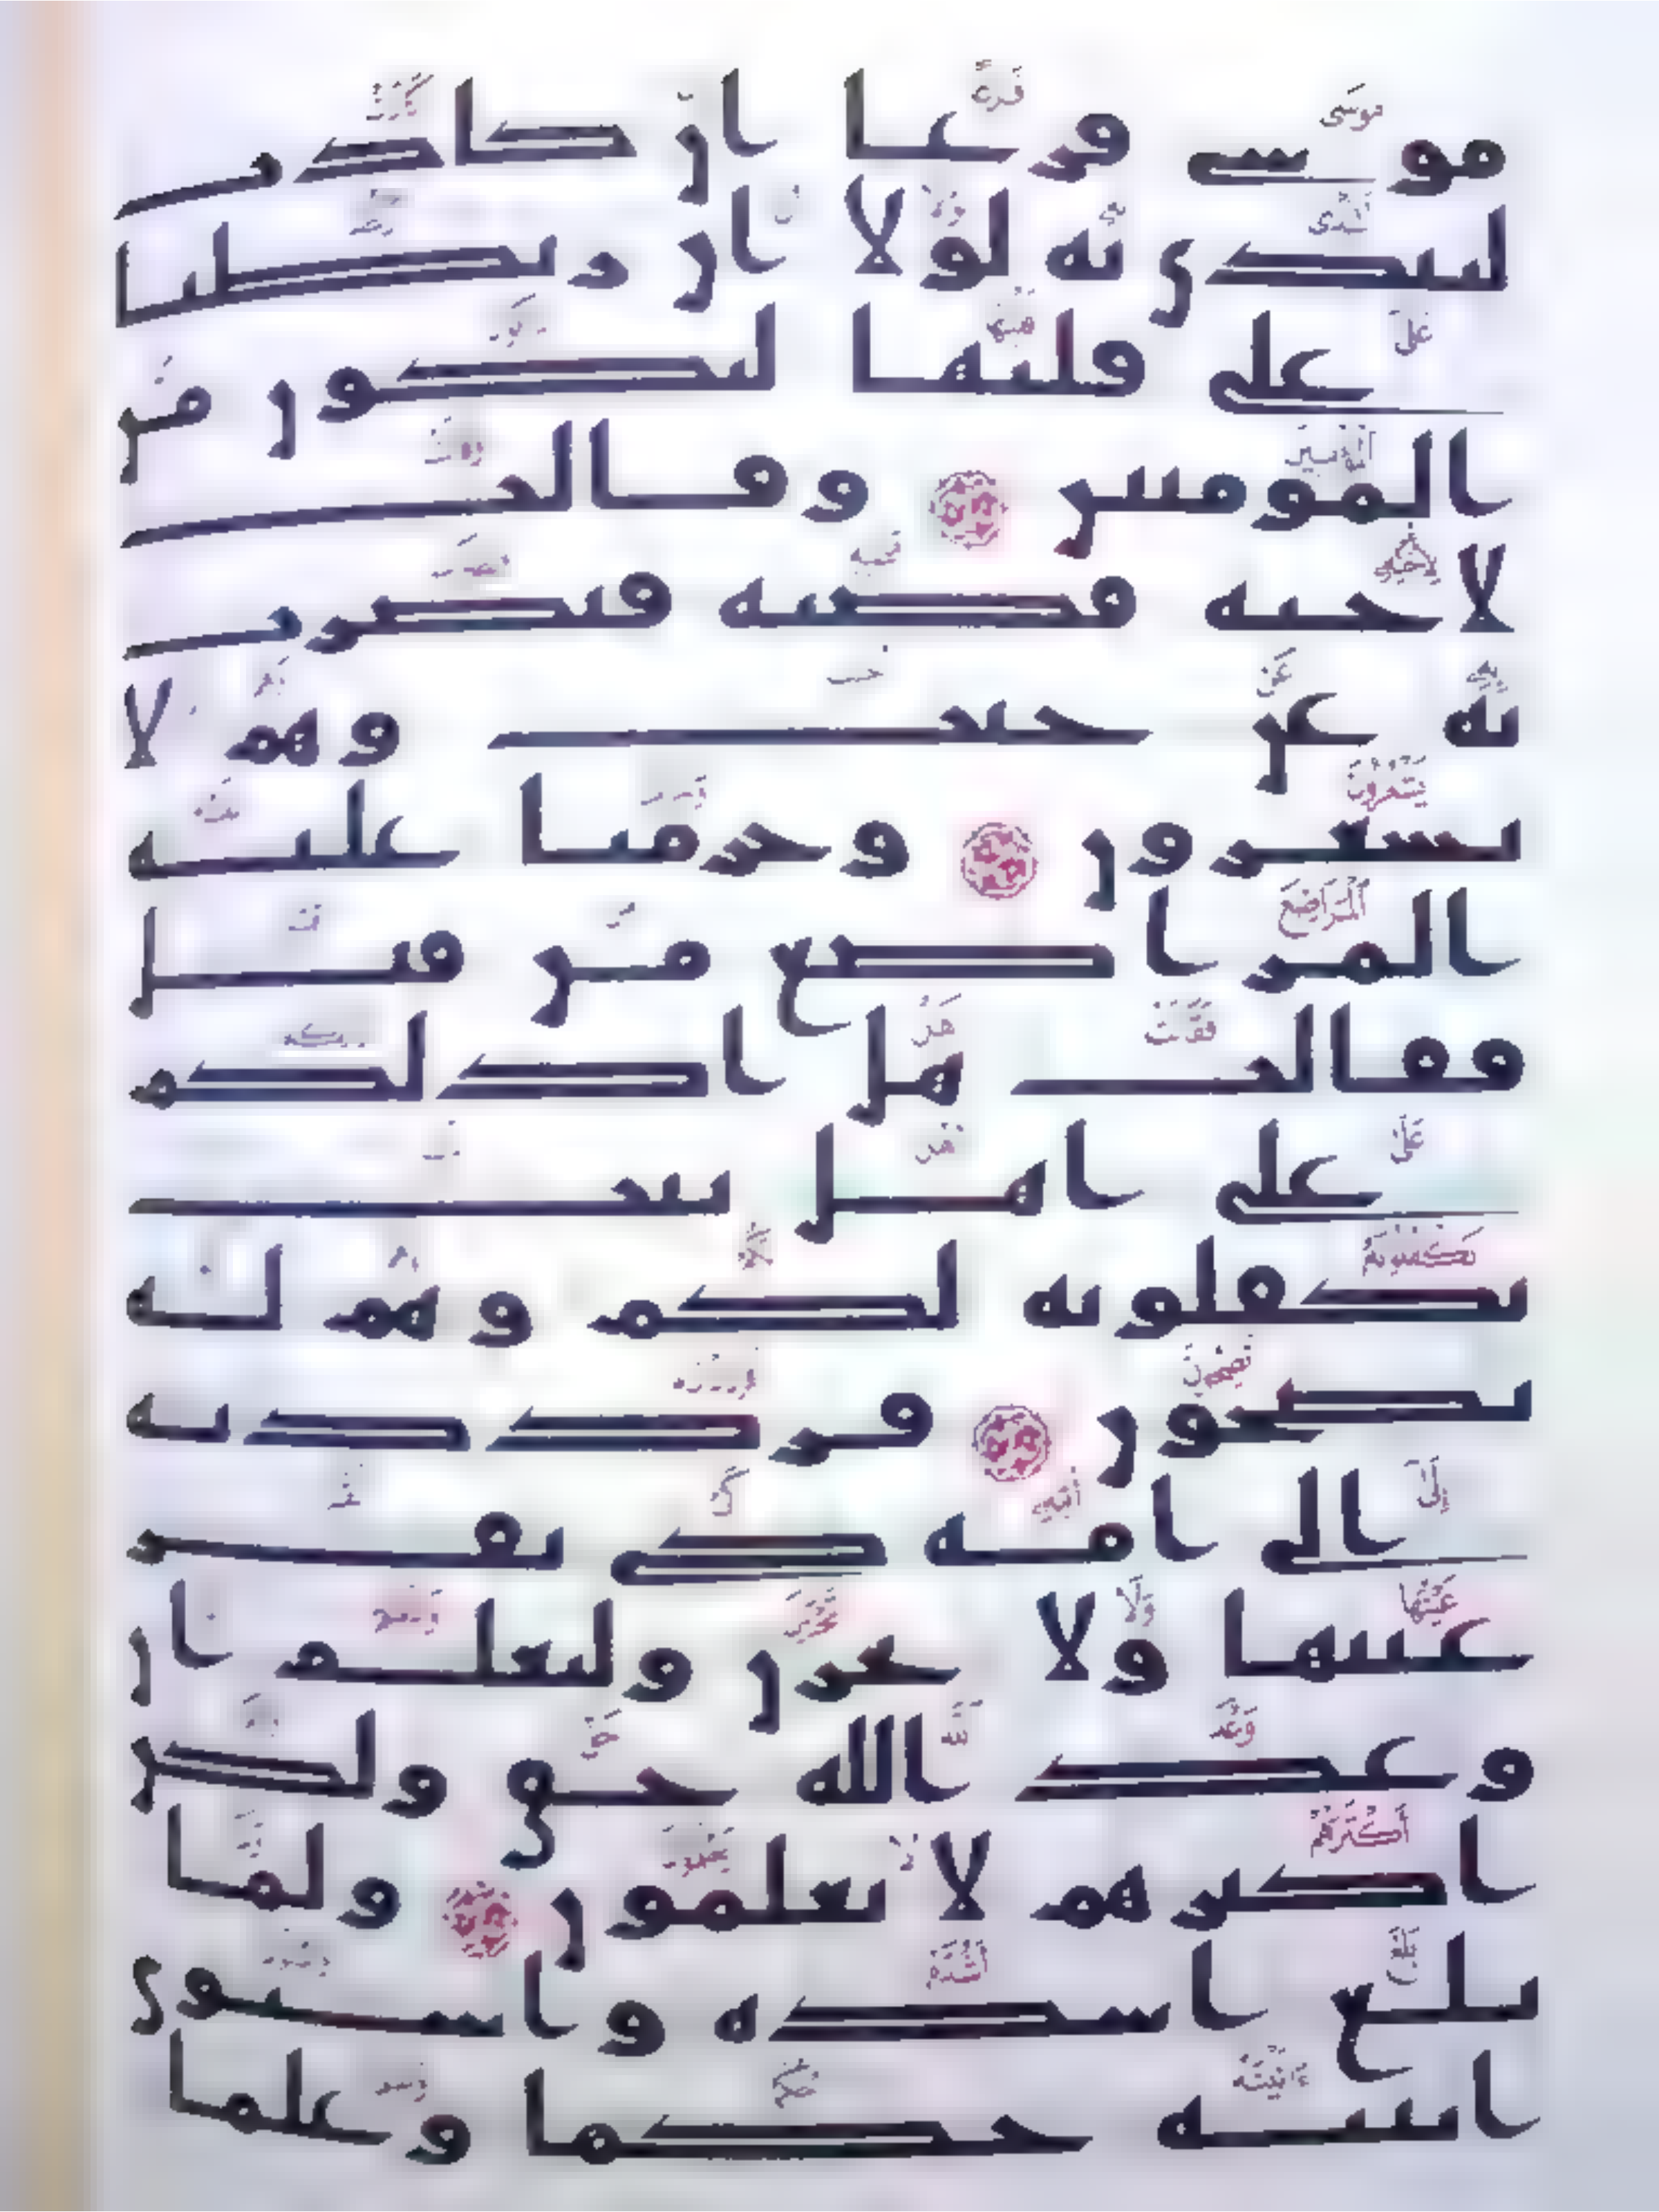 موسى فرغا ان كادت
لتبدى به لولا ان ربطنا
على قلبها لتكون من
المومنين وقالت
لاخته قصيه فبصرت
به عن جنب وهم لا
يشعرون وحرمنا عليه
المراضع من قبل
فقالت هل ادلكم
على اهل بيت
يكفلونه لكم وهم له
نصحون فرددنه
الى امه كى تقر
عينها ولا تحزن ولتعلم ان
وعد الله حق ولكن
اكثرهم لا يعلمون ولما
بلغ اشده واستوى
اتينه حكما وعلما